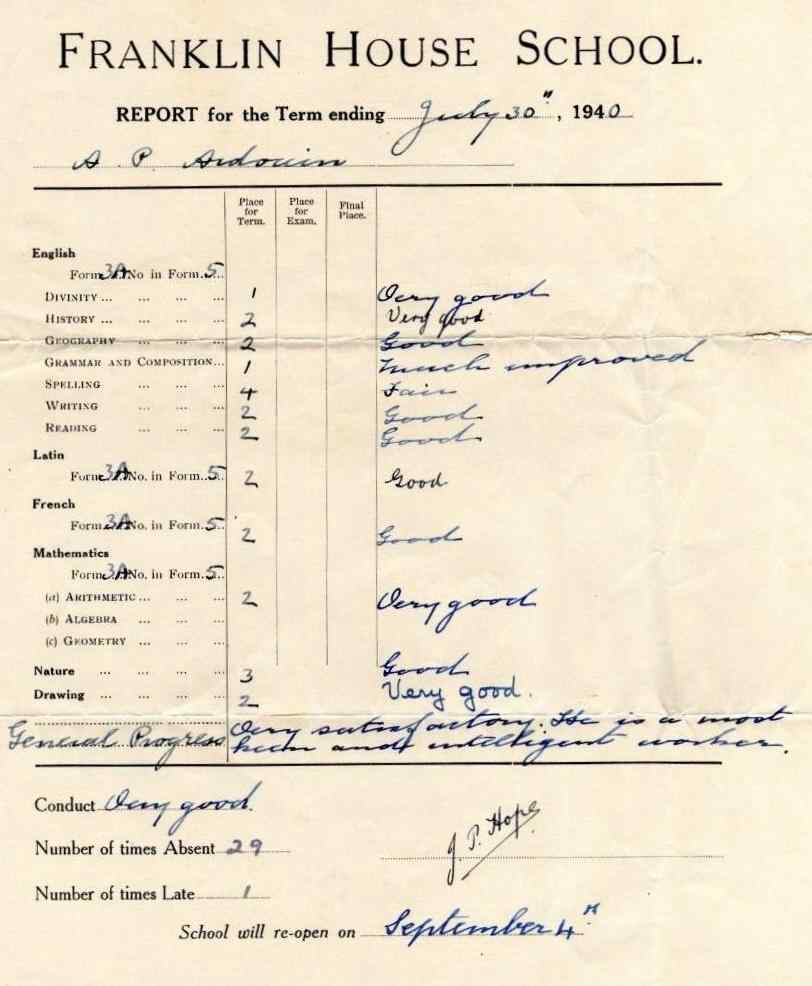 FRANKLIN HOUSE SCHOOL.
REPORT for the Term ending July 30th, 1940
A. P. Ardouin
Place for Term. Place for Exam. Final Place.
English
Form 3A No in Form 5
DIVINITY ... ... ... ... 1 Very good
HISTORY ... ... ... ... 2 Very good
GEOGRAPHY ... ... ... 2 Good
GRAMMAR AND COMPOSITION... 1 Much improved
SPELLING ... ... ... 4 Fair
WRITING ... ... ... 2 Good
READING ... ... ... 2 Good
Latin
Form 3A No. in Form 5 2 Good
French
Form 3A No. in Form 5 2 Good
Mathematics
Form 3A No. in Form 5
(a) ARITHMETIC ... ... ... 2 Very good
(b) ALGEBRA ... ... ...
(c) GEOMETRY ... ... ...
Nature ... ... ... ... 3 Good
Drawing ... ... ... ... 2 Very good.
General Progress Very satisfactory. He is a most
keen and intelligent worker.
Conduct Very good.
Number of times Absent 29
J. P. Hope
Number of times Late 1
School will re-open on September 4th